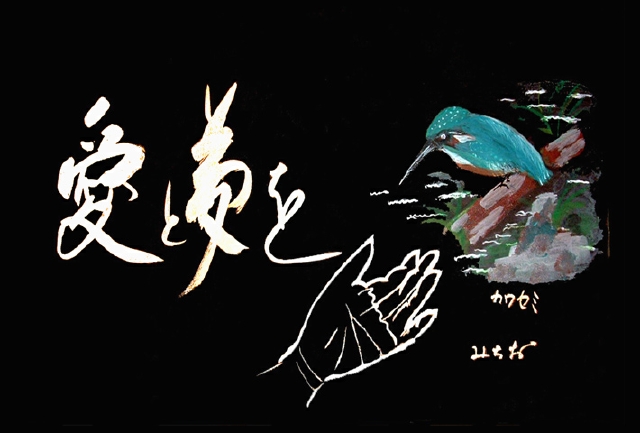 愛と夢を
カワセミ
みちお